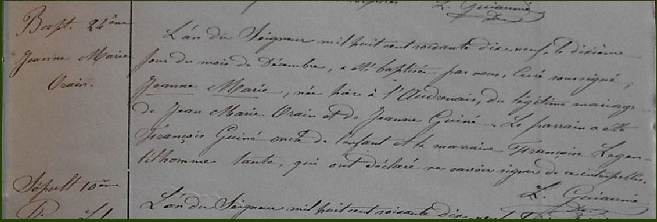 L. Guianné
Bapt. 24ème
Jeanne Marie
Orain.
L'an du Seigneur mil huit cent soixante dix-neuf, le dixième
jour du mois de Décembre, a été baptisée par nous, Curé soussigné,
Jeanne Marie, née hier à l'Audrenais, du légitime mariage
de Jean Marie Orain et de Jeanne Guiné. Le parrain a été
François Guiné oncle de l'enfant et la marraine Françoise Legen-
tilhomme tante, qui ont déclaré ne savoir signer de ce interpellés.
L. Guianné
Sépult. 10ème
L'an du Seigneur mil huit cent soixante dix-neuf